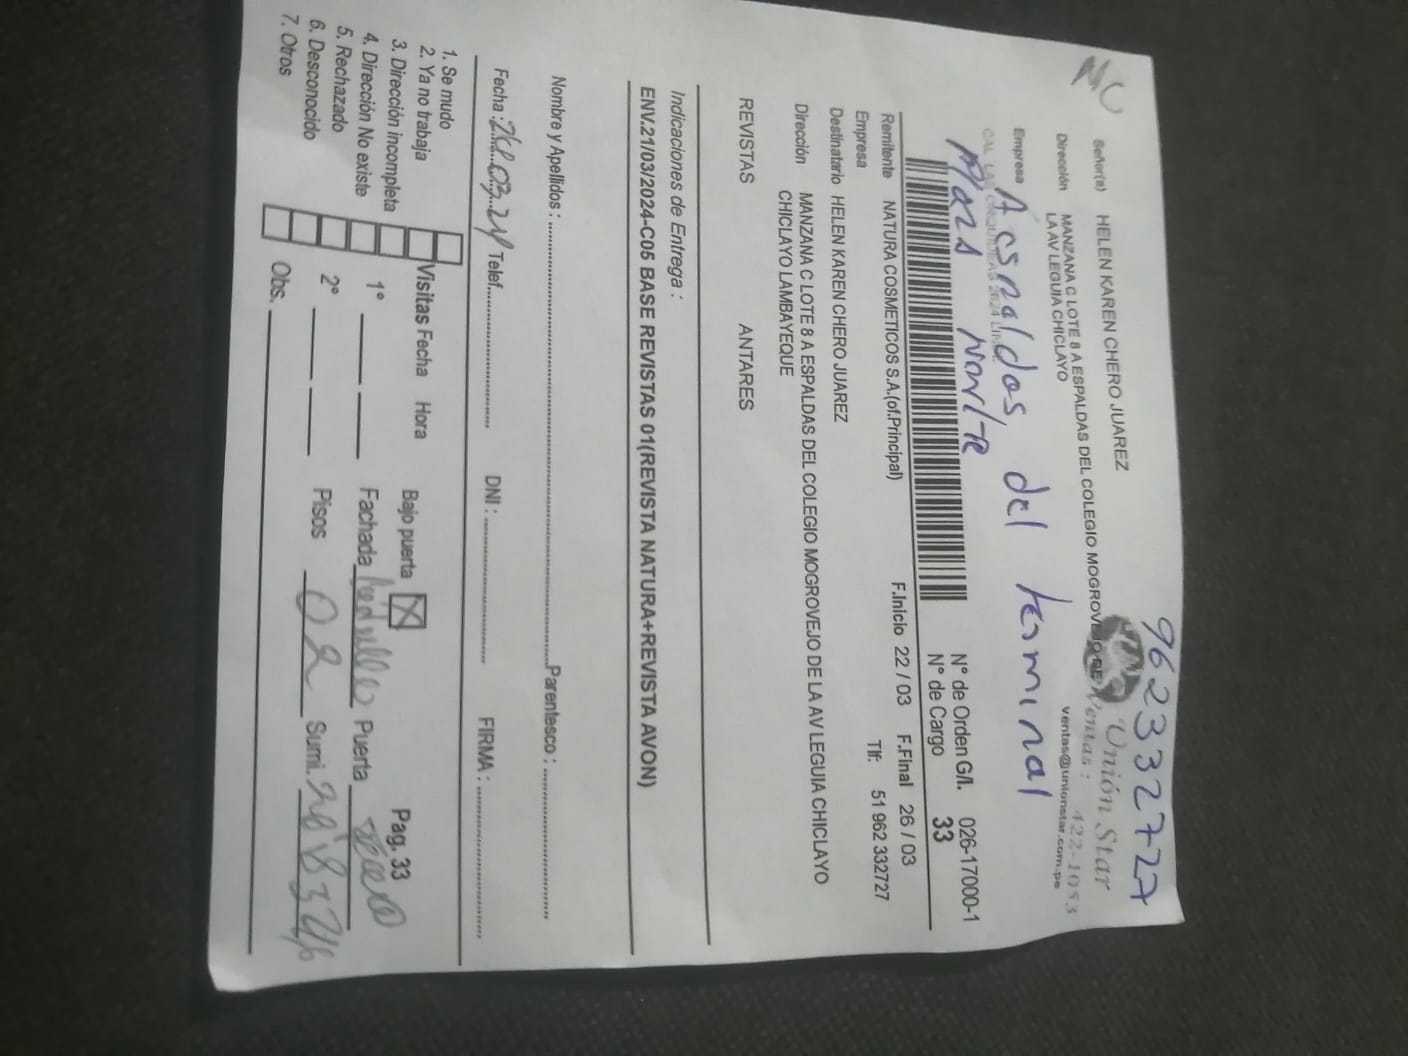 962332727
Unión Star
Ventas: 422-1053
ventas@unionstar.com.pe
Señor(a) HELEN KAREN CHERO JUAREZ
Dirección MANZANA C LOTE 8 A ESPALDAS DEL COLEGIO MOGROVEJO DE
LA AV LEGUIA CHICLAYO
Empresa
A Espaldas del terminal
Plaza Norte
N° de Orden G/I. 026-17000-1
N° de Cargo 33
Remitente NATURA COSMETICOS S.A.(of.Principal) F.Inicio 22 / 03 F.Final 26 / 03
Empresa Tlf: 51 962 332727
Destinatario HELEN KAREN CHERO JUAREZ
Dirección MANZANA C LOTE 8 A ESPALDAS DEL COLEGIO MOGROVEJO DE LA AV LEGUIA CHICLAYO
CHICLAYO LAMBAYEQUE
REVISTAS ANTARES
Indicaciones de Entrega :
ENV.21/03/2024-C05 BASE REVISTAS 01(REVISTA NATURA+REVISTA AVON)
Nombre y Apellidos : Parentesco :
Fecha : 26.03.24 Telef. DNI : FIRMA :
1. Se mudo
2. Ya no trabaja
3. Dirección incompleta
4. Dirección No existe
5. Rechazado
6. Desconocido
7. Otros
Visitas Fecha Hora
1°
2°
Obs.
Bajo puerta X Pag. 33
Fachada Ladrillo Puerta
Pisos 02 Sumi.